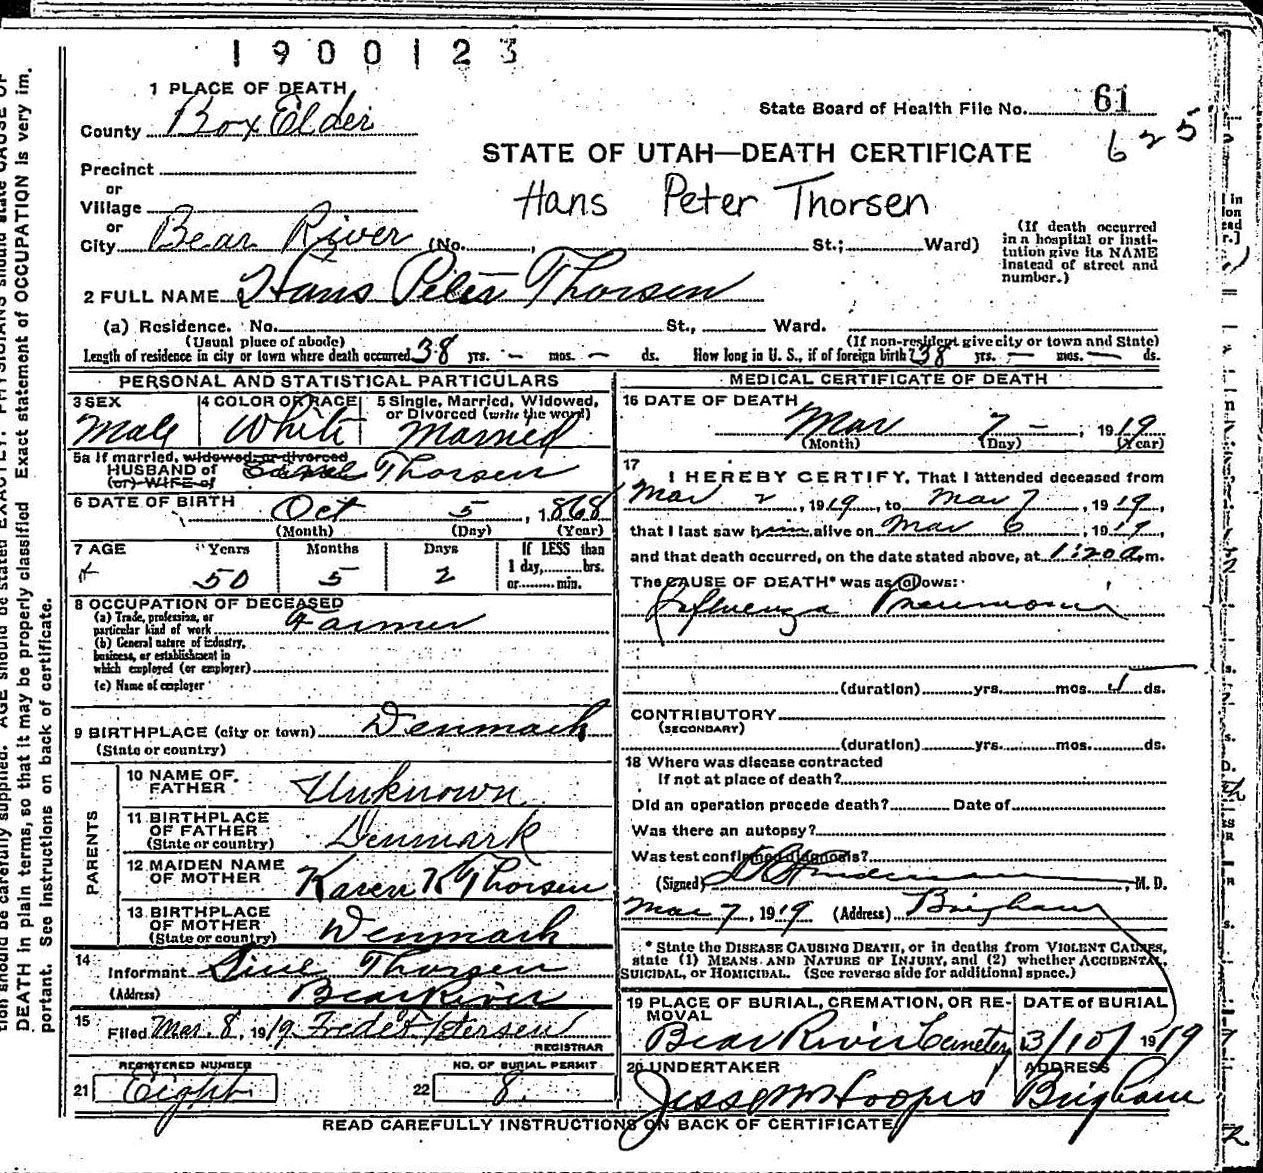 1900123
1 PLACE OF DEATH
County Box Elder
State Board of Health File No. 61
625
Precinct
or
Village
or
City Bear River (No. , St.; Ward)
STATE OF UTAH—DEATH CERTIFICATE
Hans Peter Thorsen
(If death occurred
in a hospital or insti-
tution give its NAME
instead of street and
number.)
2 FULL NAME Hans Peter Thorsen
(a) Residence. No. St., Ward.
(Usual place of abode) (If non-resident give city or town and State)
Length of residence in city or town where death occurred 38 yrs. - mos. - ds. How long in U. S., if of foreign birth? 38 yrs. - mos. - ds.
PERSONAL AND STATISTICAL PARTICULARS
3 SEX 4 COLOR OR RACE 5 Single, Married, Widowed,
or Divorced (write the word)
Male White Married
5a If married, widowed, or divorced
HUSBAND of Thorsen
(or) WIFE of
6 DATE OF BIRTH Oct 5, 1868
(Month) (Day) (Year)
7 AGE Years Months Days If LESS than
1 day, hrs.
50 5 2 or min.
8 OCCUPATION OF DECEASED
(a) Trade, profession, or
particular kind of work Farmer
(b) General nature of industry,
business, or establishment in
which employed (or employer)
(c) Name of employer
9 BIRTHPLACE (city or town) Denmark
(State or country)
PARENTS
10 NAME OF
FATHER Unknown
11 BIRTHPLACE
OF FATHER Denmark
(State or country)
12 MAIDEN NAME
OF MOTHER Karen K Thorsen
13 BIRTHPLACE
OF MOTHER Denmark
(State or country)
14
Informant Thorsen
(Address) Bear River
15 Filed Mar. 8, 1919
REGISTRAR
REGISTERED NUMBER NO. OF BURIAL PERMIT
21 Eight 22 8
MEDICAL CERTIFICATE OF DEATH
16 DATE OF DEATH
Mar 7 - , 1919
(Month) (Day) (Year)
17
I HEREBY CERTIFY, That I attended deceased from
Mar 2, 1919, to Mar 7, 1919,
that I last saw him alive on Mar 6, 1919,
and that death occurred, on the date stated above, at 1:20 a.m.
The CAUSE OF DEATH* was as follows:
Influenza Pneumonia
(duration) yrs. mos. 5 ds.
CONTRIBUTORY
(SECONDARY)
(duration) yrs. mos. ds.
18 Where was disease contracted
If not at place of death?
Did an operation precede death? Date of
Was there an autopsy?
Was test confirmed diagnosis?
(Signed) , M. D.
Mar 7, 1919 (Address) Brigham
* State the DISEASE CAUSING DEATH, or in deaths from VIOLENT CAUSES,
state (1) MEANS AND NATURE OF INJURY, and (2) whether ACCIDENTAL,
SUICIDAL, or HOMICIDAL. (See reverse side for additional space.)
19 PLACE OF BURIAL, CREMATION, OR RE-
MOVAL DATE of BURIAL
Bear River Cemetery 3/10/1919
20 UNDERTAKER ADDRESS
Brigham
READ CAREFULLY INSTRUCTIONS ON BACK OF CERTIFICATE
DEATH in plain terms, so that it may be properly classified Exact statement of OCCUPATION is very im.
portant. See instructions on back of certificate.